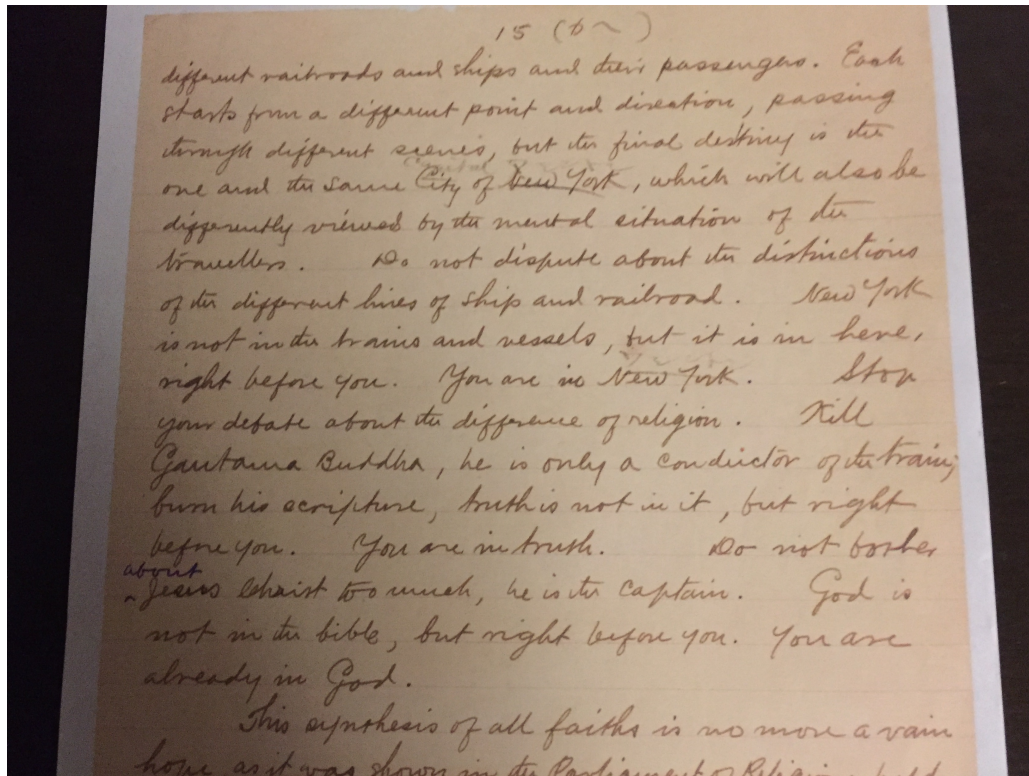 15 (b~)
different railroads and ships and their passengers. Each
starts from a different point and direction, passing
through different scenes, but the final destiny is the
one and the same City of New York, which will also be
differently viewed by the mental situation of the
travellers. Do not dispute about the distinctions
of the different lines of ship and railroad. New York
is not in the trains and vessels, but it is in here,
right before you. You are in New York. Stop
your debate about the difference of religion. Kill
Gautama Buddha, he is only a conductor of the train;
burn his scripture, truth is not in it, but right
before you. You are in truth. Do not bother
about
Jesus Christ too much, he is the captain. God is
not in the bible, but right before you. You are
already in God.
This synthesis of all faiths is no more a vain
hope as it was shown in the Parliament of Religion